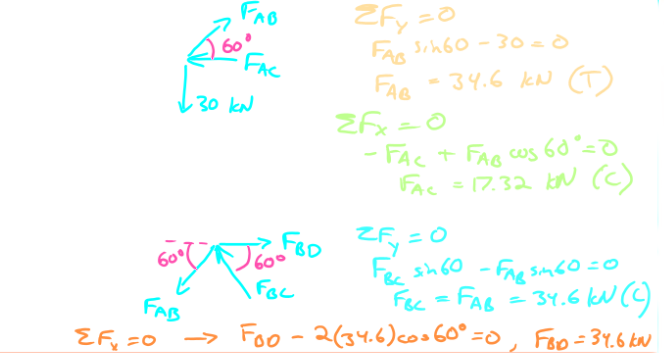 F_AB
60°
F_AC
30 kN
ΣF_y = 0
F_AB sin60 - 30 = 0
F_AB = 34.6 kN (T)
ΣF_x = 0
- F_AC + F_AB cos 60° = 0
F_AC = 17.32 kN (C)
F_BD
60°
60°
F_BC
F_AB
ΣF_y = 0
F_BC sin60 - F_AB sin60 = 0
F_BC = F_AB = 34.6 kN (C)
ΣF_x = 0 → F_BD - 2(34.6)cos60° = 0, F_BD = 34.6 kN